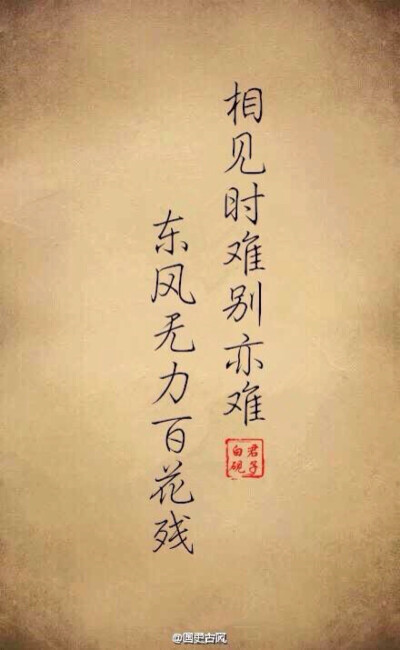 相见时难别亦难
东风无力百花残
君子
白砚
@国史古风